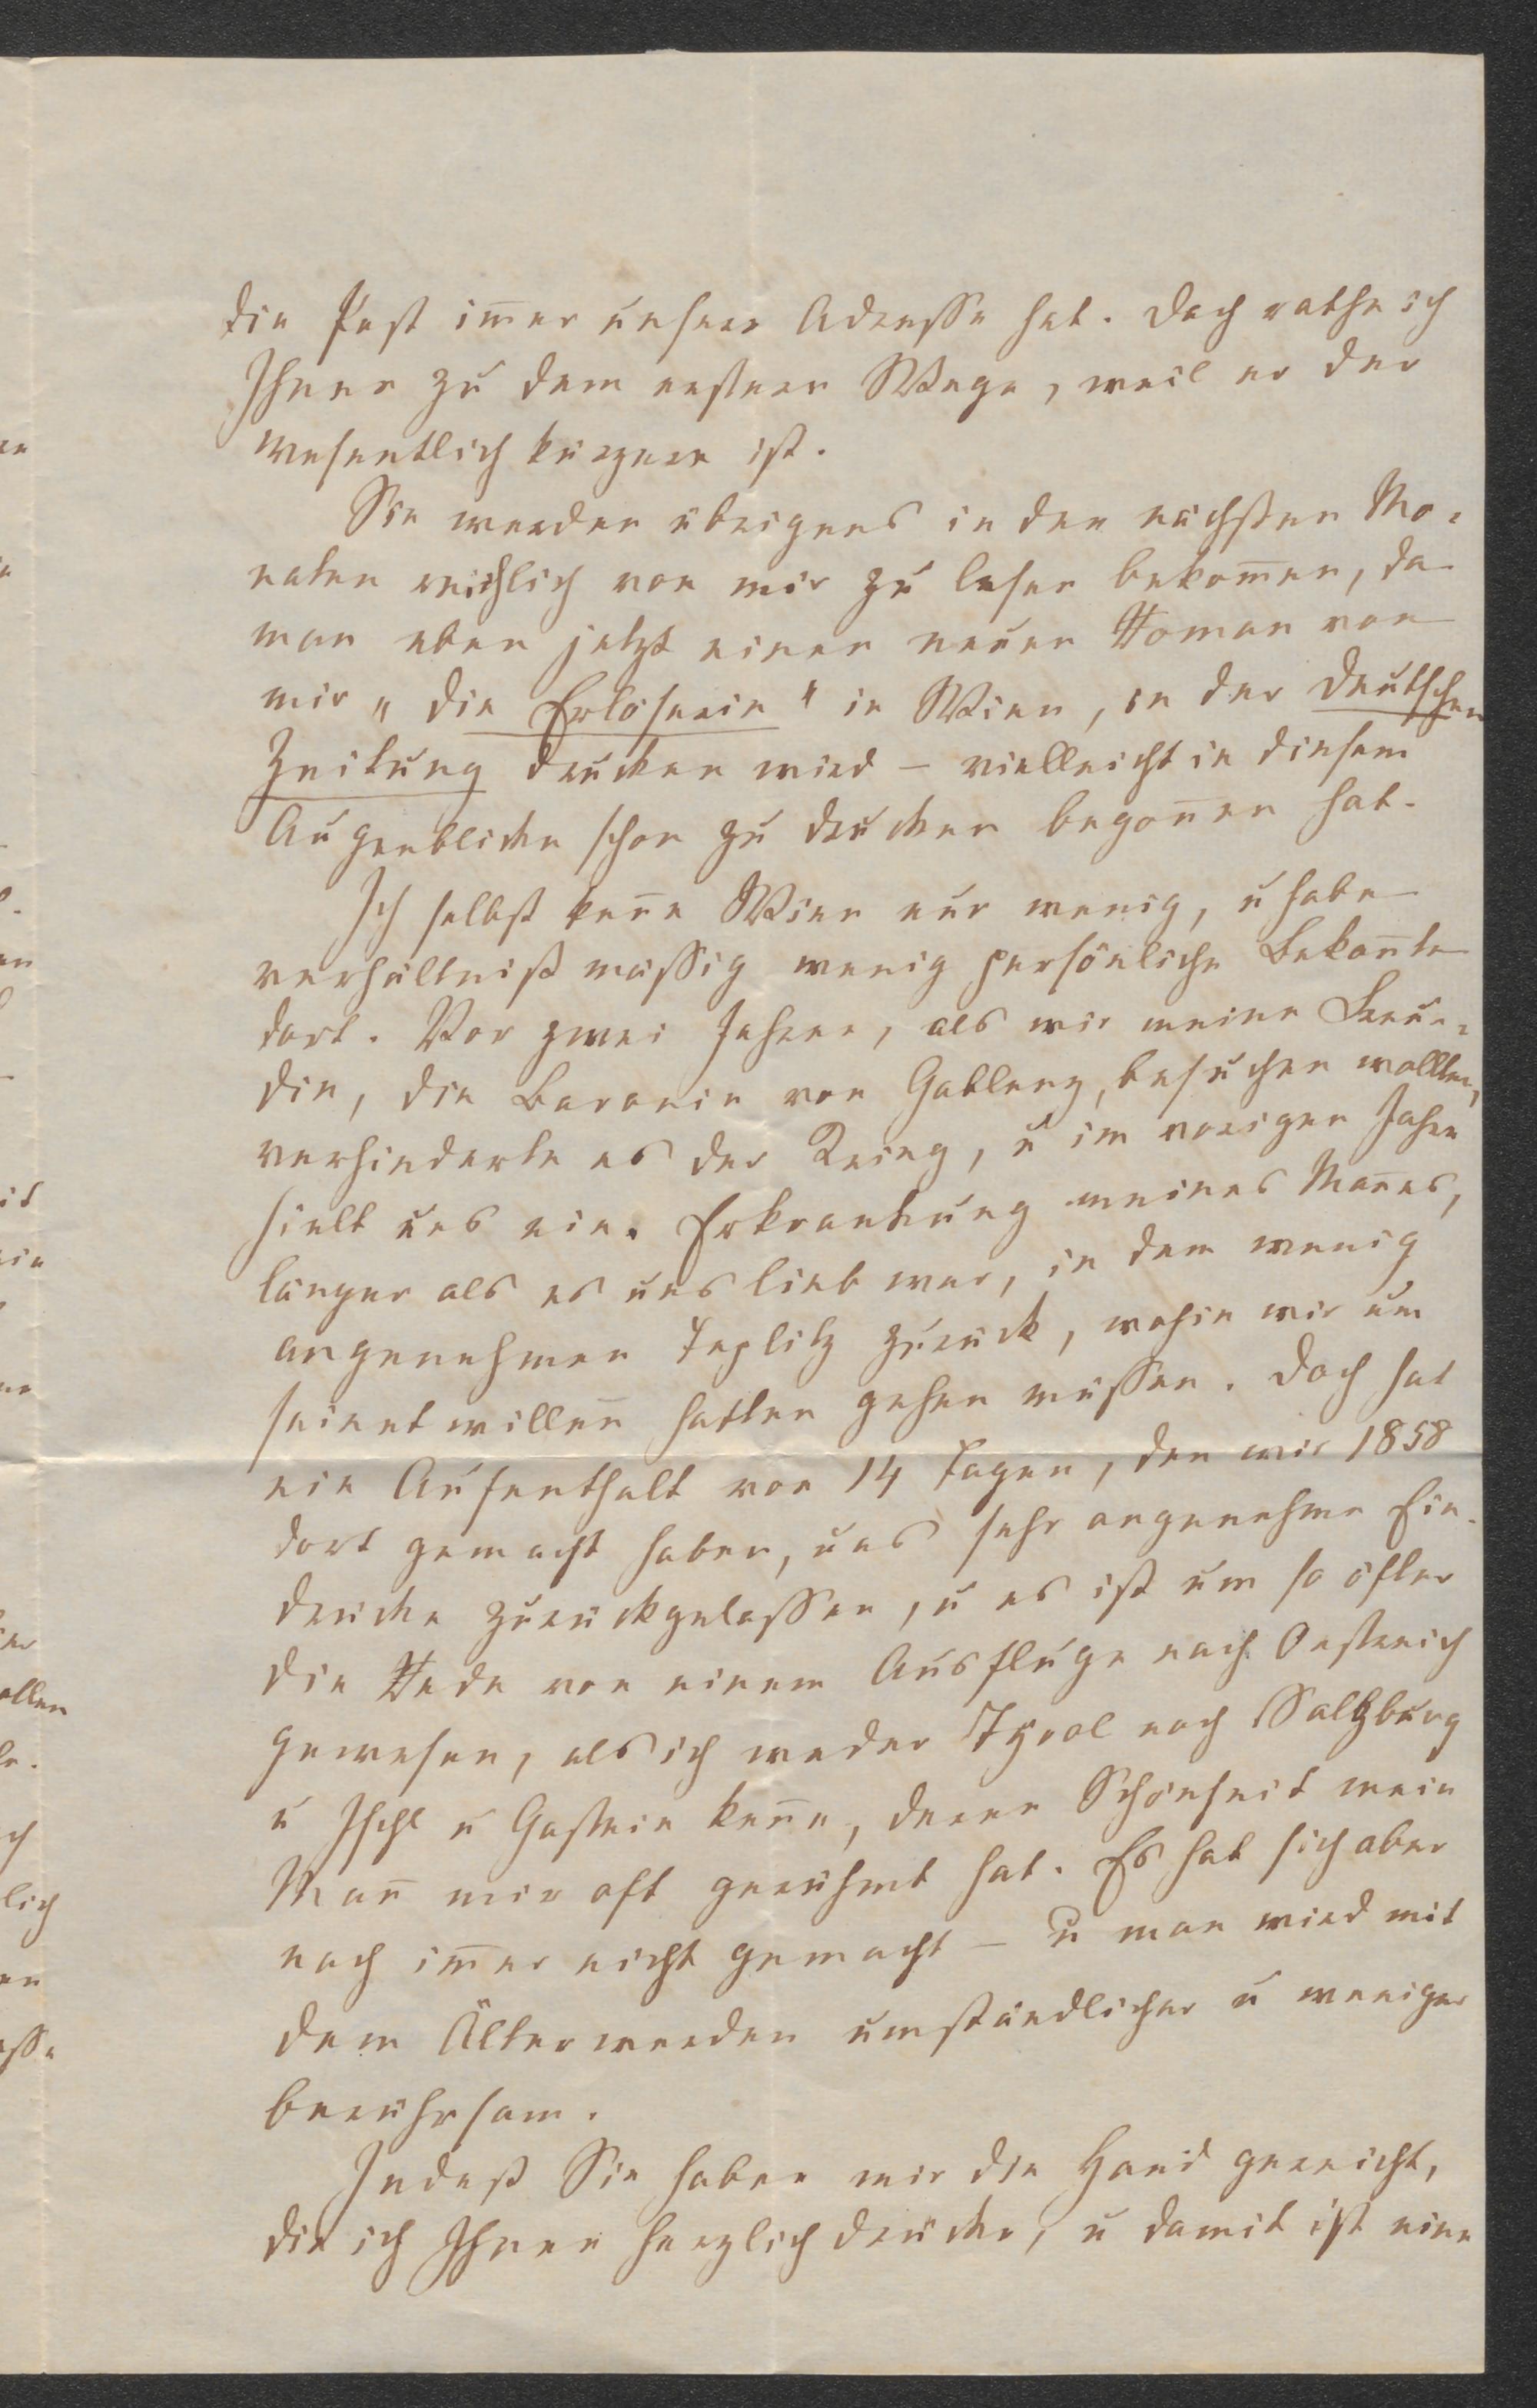 die Post im̅er unsere Adresse hat. Doch rathe ich
Ihnen zu dem ersteren Wege, weil er der
wesentlich kürzere ist.
Sie werden übrigens in den nächsten Mo-
naten reichlich von mir zu lesen bekom̅en, da
man eben jetzt einen neuen Roman von
mir „die Erlöserin" in Wien, in der deutschen
Zeitung drucken wird – vielleicht in diesem
Augenblicke schon zu drucken begon̅en hat.
Ich selbst ken̅e Wien nur wenig, u habe
verhältnißmässig wenig persönliche Bekan̅te
dort. Vor zwei Jahren, als wir meine Freun-
din, die Baronin von Gablenz, besuchen wollten,
verhinderte es der Krieg, u im vorigen Jahre
hielt uns eine Erkrankung meines Man̅es,
länger als es uns lieb war, in dem wenig
angenehmen Teplitz zurück, wohin wir um
seinetwillen hatten gehen müssen. Doch hat
ein Aufenthalt von 14 Tagen, den wir 1858
dort gemacht haben, uns sehr angenehme Ein-
drücke zurückgelassen, u es ist um so öfter
die Rede von einem Ausfluge nach Oestreich
gewesen, als ich weder Tyrol noch Saltzburg
u Ischl u Gastein ken̅e, deren Schönheit mein
Man̅ mir oft gerühmt hat. Es hat sich aber
noch im̅er nicht gemacht – u man wird mit
dem Älterwerden umständlicher u weniger
berührsam.
Indeß Sie haben mir die Hand gereicht,
die ich Ihnen herzlich drücke, u damit ist eine